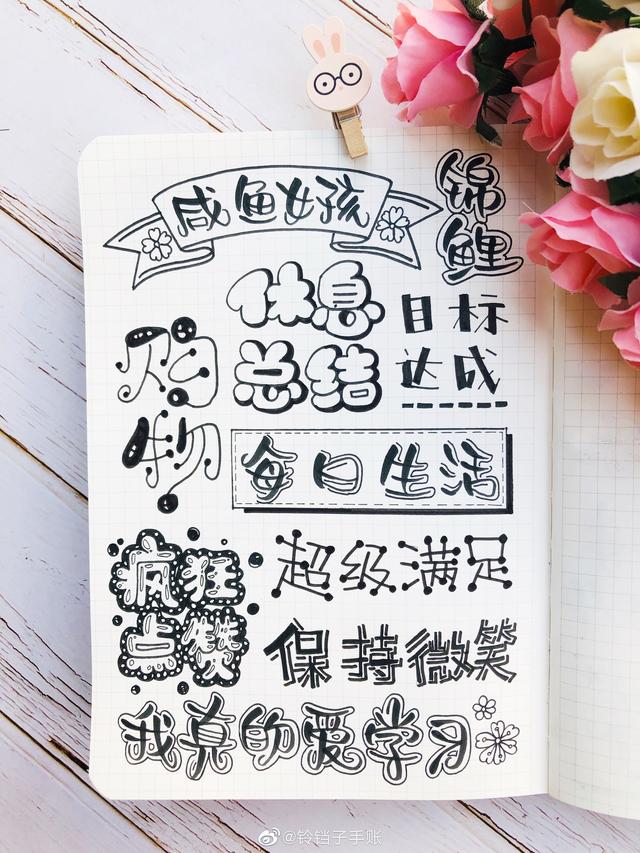 咸鱼女孩
锦鲤
休息
总结
目标
达成
购物
每日生活
疯狂
点赞
超级满足
保持微笑
我真的爱学习
@铃铛子手账